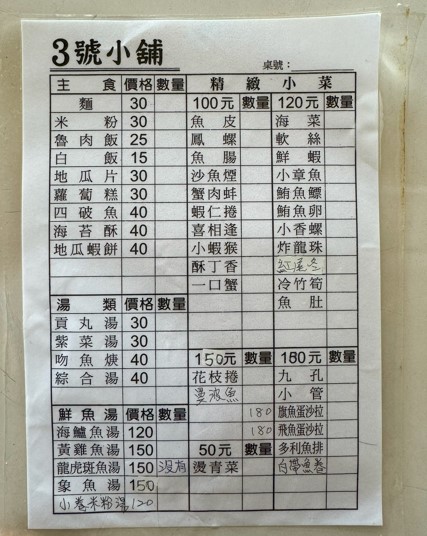 3號小舖
桌號：
主食 價格 數量 精緻小菜
麵 30 100元 數量 120元 數量
米粉 30 魚皮 海菜
魯肉飯 25 鳳螺 軟絲
白飯 15 魚腸 鮮蝦
地瓜片 30 沙魚煙 小章魚
蘿蔔糕 30 蟹肉蚌 鮪魚鰾
四破魚 40 蝦仁捲 鮪魚卵
海苔酥 40 喜相逢 小香螺
地瓜蝦餅 40 小蝦猴 炸龍珠
酥丁香 紅尾冬
一口蟹 冷竹筍
湯類 價格 數量 魚肚
貢丸湯 30
紫菜湯 30
吻魚焿 40 150元 數量 180元 數量
綜合湯 40 花枝捲 九孔
小管
鮮魚湯 價格 數量 180 旗魚蛋沙拉
海鱺魚湯 120 180 飛魚蛋沙拉
黃雞魚湯 150 50元 數量 多利魚排
龍虎斑魚湯 150 沒有 燙青菜 白帶魚卷
象魚湯 150
小卷米粉湯 120